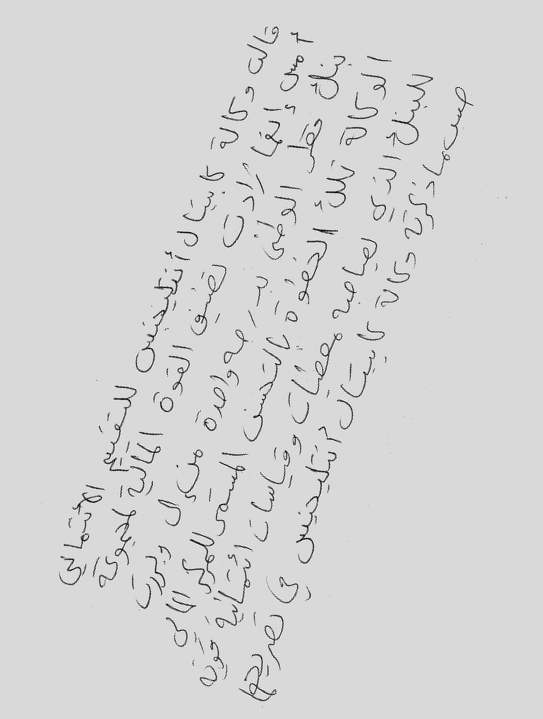 قالت وكالة كابيتال أنتليجنس للتقييم الائتماني
أمس أنها زادت تصنيف القوة المالية لمجموعة
بنك قطر الوطني بدرجة واحدة من وبررت
الوكالة تلك الخطوة بالتحسن المستمر للمركز المالي
للبنك الذي يصاحبه معطيات وقياسات ائتمانية قوية
حسب ما ذكرته وكالة كابيتال أنتليجنس في تصريحها